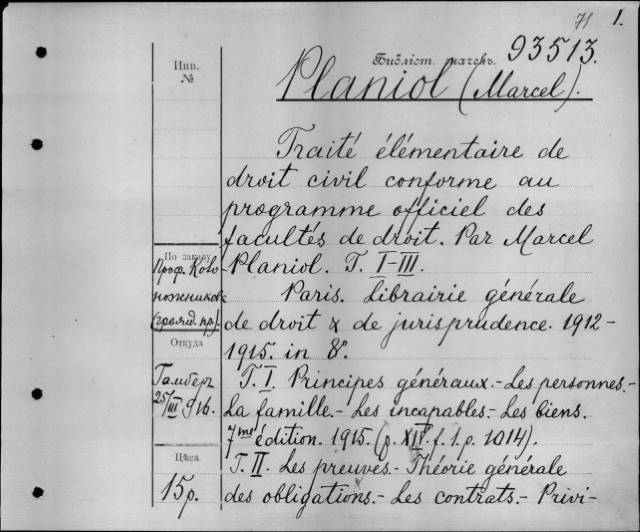 71 1.
Библіот. 93513.
Инв.
№
Planiol (Marcel).
Traité élémentaire de
droit civil conforme au
programme officiel des
facultés de droit. Par Marcel
Planiol. T. I-III.
Paris. Librairie générale
de droit & de jurisprudence. 1912-
1915. in 8°.
T. I. Principes généraux.- Les personnes.-
La famille.- Les incapables.- Les biens.
7me édition. 1915. (p. XIV. f. 1. p. 1014).
T. II. Les preuves.- Théorie générale
des obligations.- Les contrats.- Privi-
По заказу
Проф. Кото-
ножников
Откуда
Гамберъ
25/III 916.
Цѣна
15 р.